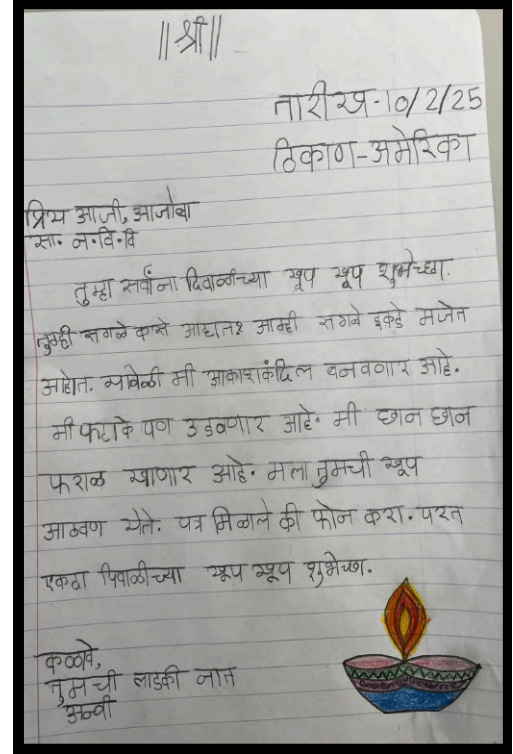 ||श्री||
तारीख-10/2/25
ठिकाण-अमेरिका
प्रिय आजी, आजोबा
सा. न.वि.वि
तुम्हा सर्वांना दिवाळीच्या खूप खूप शुभेच्छा.
तुम्ही सगळे कसे आहात? आम्ही सगळे इकडे मजेत
आहोत. यावेळी मी आकाशकंदिल बनवणार आहे.
मी फटाके पण उडवणार आहे. मी छान छान
फराळ खाणार आहे. मला तुमची खूप
आठवण येते. पत्र मिळाले की फोन करा. परत
एकदा दिवाळीच्या खूप खूप शुभेच्छा.
कळावे,
तुमची लाडकी नात
अन्वी